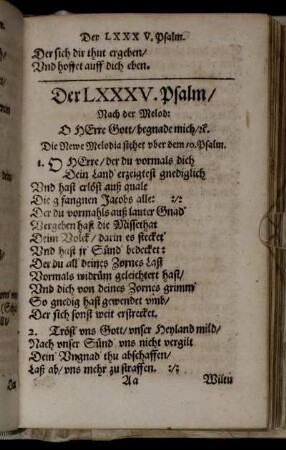 Der LXXX V. Psalm.
Der sich dir thut ergeben/
Vnd hoffet auff dich eben.
Der LXXXV. Psalm/
Nach der Melod:
O HErre Gott/ begnade mich/ ꝛc.
Die Newe Melodia stehet vber dem 70. Psalm.
1. O HErre/ der du vormals dich
Dein Land erzeigtest gnediglich
Vnd hast erlöst auß quale
Die gfangnen Jacobs alle: :/:
Der du vormahls auß lauter Gnad
Vergeben hast die Missethat
Deim Volck/ darin es stecket
Vnd hast jr Sünd bedecket:
Der du all deines Zornes Last
Vormals widrüm geleichtert hast/
Vnd dich von deines Zornes grimm
So gnedig hast gewendet vmb/
Der sich sonst weit erstrecket.
2. Tröst vns Gott/ vnser Heyland mild/
Nach vnser Sünd vns nicht vergilt
Dein Vngnad thu abschaffen/
Laß ab/ vns mehr zu straffen. :/:
Aa Wiltu